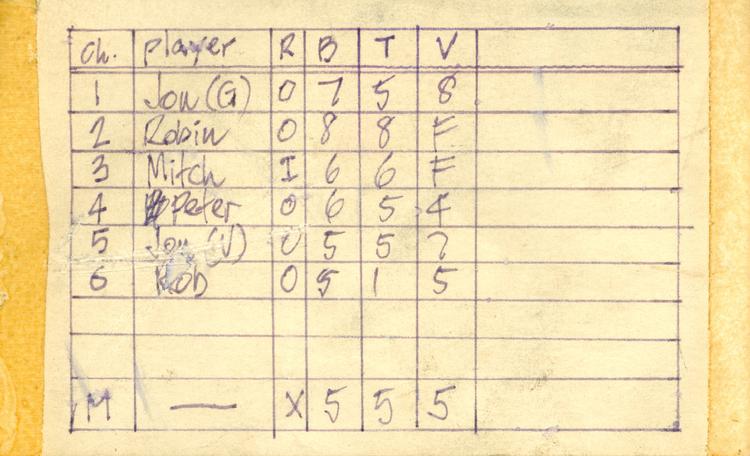 Ch. Player R B T V
1 Jon (G) 0 7 5 8
2 Robin 0 8 8 F
3 Mitch I 6 6 F
4 Peter 0 6 5 4
5 Jon (V) 0 5 5 7
6 Rob 0 5 1 5
M — X 5 5 5